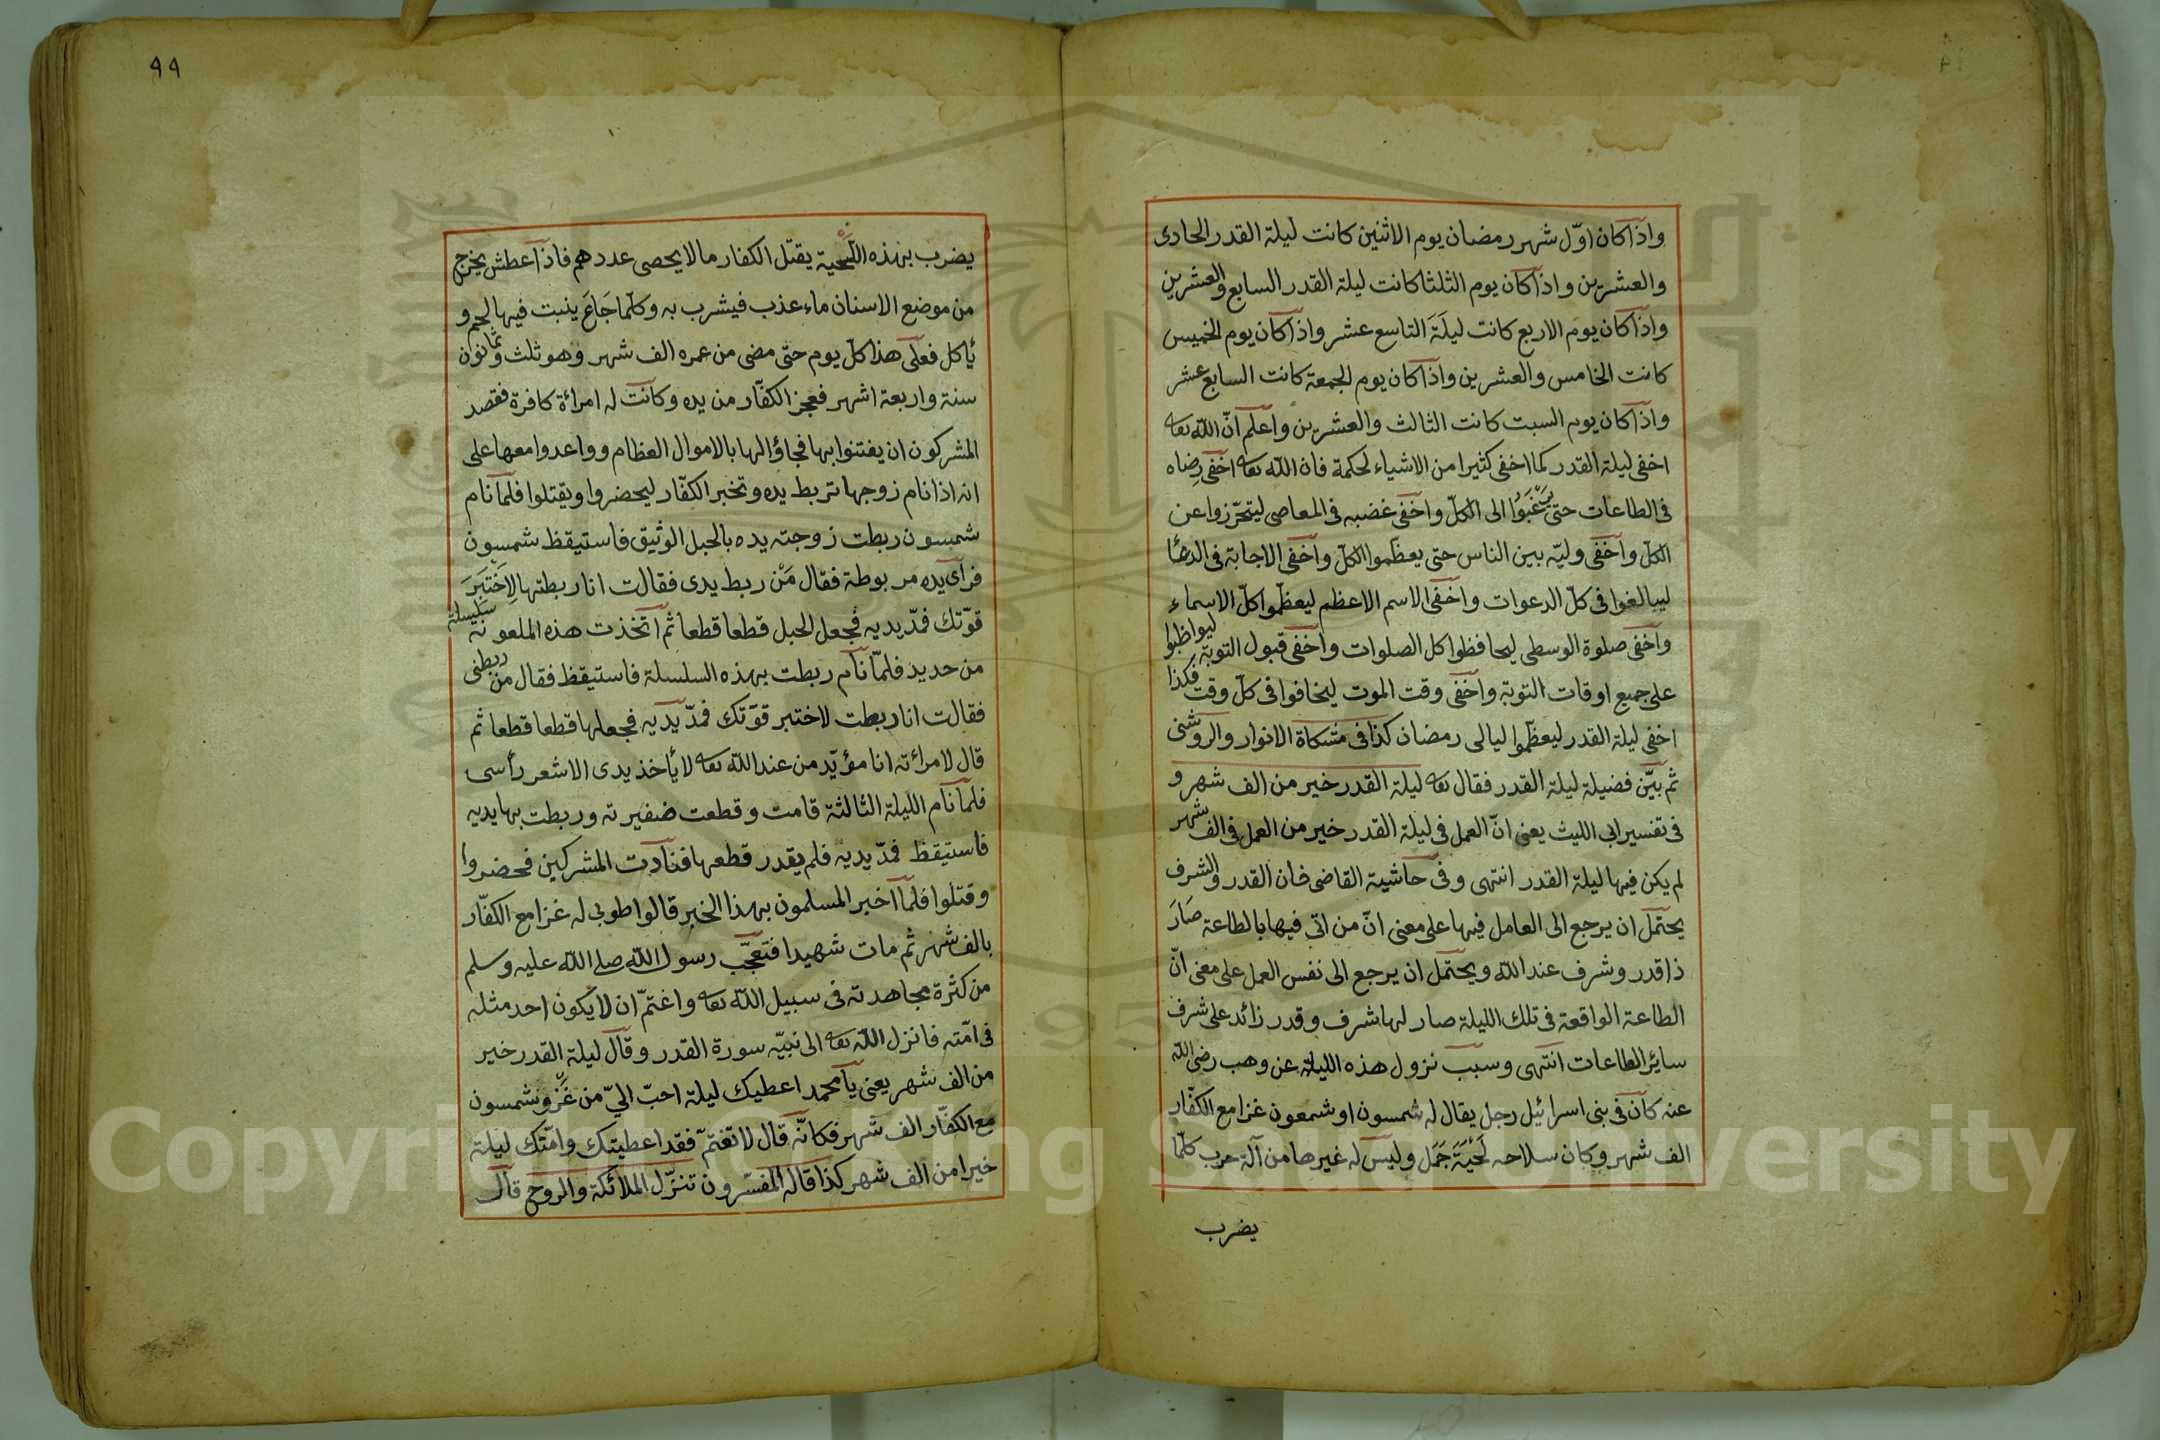 واذا كان اوّل شهر رمضان يوم الاثنين كانت ليلة القدر الحادى
والعشرين واذا كان يوم الثلثا كانت ليلة القدر السابع والعشرين
واذا كان يوم الاربع كانت ليلَةَ التاسع عشر واذا كان يوم الخميس
كانت الخامس والعشرين واذا كان يوم الجمعة كانت السابع عشر
واذا كان يوم السبت كانت الثالث والعشرين واعلم انّ الله تعه
اخفى ليلة القدر كما اخفى كثيرا من الاشياء لحكمة فان الله تعه اخفى رضاه
فى الطاعات حتى يرغبوا الى الكلّ واخفى غضبه فى المعاصى ليتحرّزوا عن
الكل واخفى وليّه بين الناس حتى يعظّموا الكلّ واخفى الاجابة فى الدعا
ليبالغوا فى كلّ الدعوات واخفى الاسم الاعظم ليعظّموا كلّ الاسماء
واخفى صلوة الوسطى ليحافظوا كل الصلوات واخفى قبول التوبة ليواظبوا
على جميع اوقات التوبة واخفى وقت الموت ليخافوا فى كلّ وقت فكذا
اخفى ليلة القدر ليعظّموا ليالى رمضان كذا فى مشكاة الانوار والروشنى
ثم بيّن فضيلة ليلة القدر فقال تعه ليلة القدر خير من الف شهر و
فى تفسير ابى الليث يعنى انّ العمل فى ليلة القدر خير من العمل فى الف شهر
لم يكن فيها ليلة القدر انتهى وفى حاشية القاضى فان القدر والشرف
يحتمل ان يرجع الى العامل فيها على معنى انّ من اتى فيها بالطاعة صَارَ
ذا قدر وشرف عند الله ويحتمل ان يرجع الى نفس العمل على معنى انّ
الطاعة الواقعة فى تلك الليلة صار لها شرف وقدر زائد على شرف
سائر الطاعات انتهى وسبب نزول هذه الليلة عن وهب رضى الله
عنه كان فى بنى اسرائيل رجل يقال له شمسون او شمعون غزا مع الكفّار
الف شهر وكان سلاحه لَحْيَةَ جَمَل وليس له غيرها من آلة حرب كلّما
يضرب
٩٩
يضرب بهذه اللَّحْية يقتل الكفار ما لا يحصى عددهم فاذا عطش يخرج
من موضع الاسنان ماء عذب فيشرب به وكلّما جَاعَ ينبت فيها لحم و
يأكل فعلى هذا كلّ يوم حتى مضى من عمره الف شهر وهو ثلث وثمانون
سنة واربعة اشهر فعجز الكفّار من يده وكانت له امرائة كافرة فقصد
المشركون ان يفتنوا بها فجاؤا اليها بالاموال العظام وواعدوا معها على
انه اذا نام زوجها تربط يده وتخبر الكفّار ليحضروا ويقتلوا فلما نام
شمسون ربطت زوجته يده بالحبل الوثيق فاستيقظ شمسون
فرآى يده مربوطة فقال مَنْ ربط يدى فقالت انا ربطتها لِاختَبِرَ
قوّتك فمدّ يديه فجعل الحبل قطعا قطعا ثم اتخذت هذه الملعونة سلسلة
من حديد فلمّا نام ربطت بهذه السلسلة فاستيقظ فقال من ربطنى
فقالت انا ربطت لاختبر قوّتك فمدّ يديه فجعلها قطعا قطعا ثم
قال لامرائته انا مؤيّد من عند الله تعه لا يأخذ يدى الا شعر رأسى
فلما نام الليلة الثالثة قامت وقطعت ضفيرته وربطت بها يديه
فاستيقظ فمدّ يديه فلم يقدر قطعها فنادت المشركين فحضروا
وقتلوا فلما اخبر المسلمون بهذا الخبر قالوا طوبى له غزا مع الكفّار
بالف شهر ثم مات شهيدا فتعجّب رسول الله صلى الله عليه وسلم
من كثرة مجاهدته فى سبيل الله تعه واغتمّ ان لا يكون احد مثله
فى امّته فانزل الله تعه الى نبيّه سورة القدر وقال ليلة القدر خير
من الف شهر يعنى يا محمد اعطيك ليلة احبّ اليّ من غزو شمسون
مع الكفّار الف شهر فكانّه قال لا تغتمّ فقد اعطيتك وامّتك ليلة
خيرا من الف شهر كذا قاله المفسّرون تنزّل الملائكة والروح قال
Copyright © King Saud University